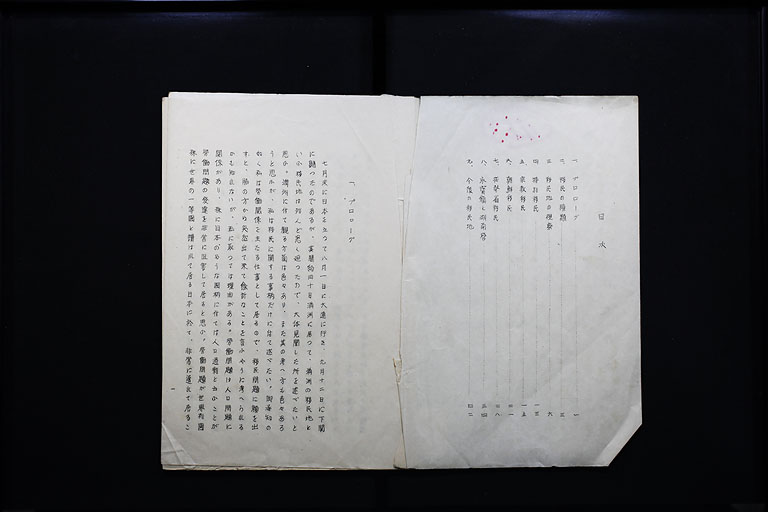 目次
一、プロローグ 一
二、移民の種類 三
三、移民地の視察 六
四、特別移民 一三
五、宗教移民 一五
六、朝鮮移民 二一
七、在勢着移民 二八
八、永安鎮と湖南営 三四
九、今後の移民地 四二
一、プロローグ
七月末に日本を立つて八月一日に大連に行き、九月十二日に下関
に帰つたのであるが、其間約四十日満洲に居つて、満洲の移民地と
いふ移民地は殆んど悉く廻つたので、大体見聞した所を述べたいと
思ふ。満洲に付て観る方面は色々あり、また其の考へ方も色々あら
うと思ふが、私は移民に関する事柄だけに付て述べたい。御承知の
如く私は労働関係を主たる仕事として居るので、移民問題に顔を出
すと、脇の方から飛出て来て余計なことを言ふやうに考へられる
かも知れないが、私に取つては理由がある。労働問題は人口問題に
関係があり、殊に日本のやうな国柄に付ては人口過剰と云ふことが
労働問題の発達を非常に阻害して居ると思ふ。労働問題が世界列国
殊に世界の一等国と謂はれて居る日本に於て、非常に遅れて居るこ